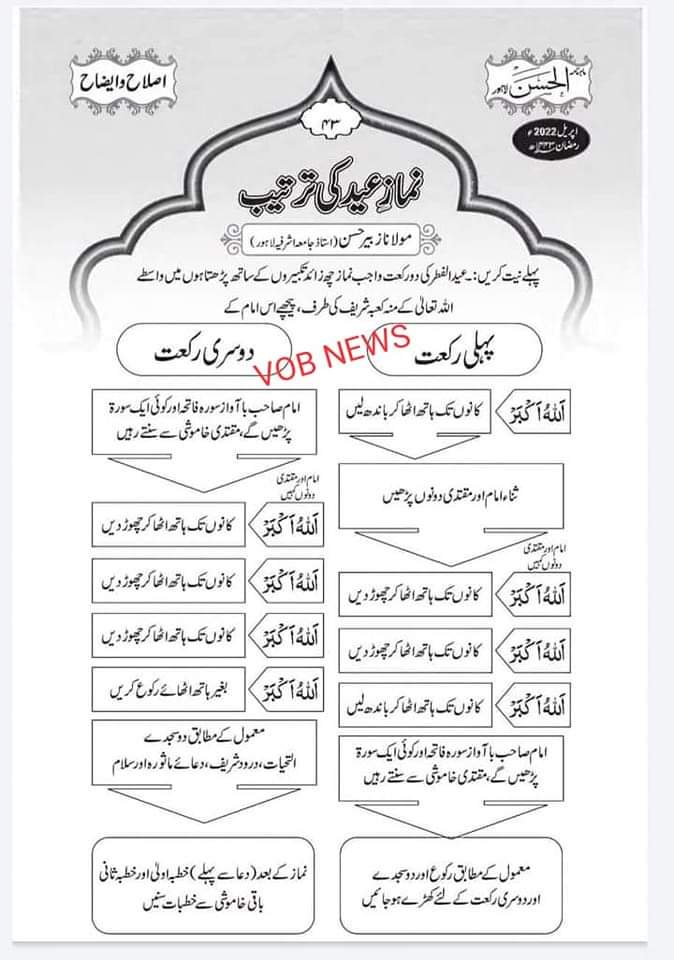 ماہنامہ الحسن لاہور
اصلاح و ایضاح
اپریل 2022ء
رمضان ۱۴۴۳ھ
۴۳
نمازِ عید کی ترتیب
مولانا زبیر حسن (استاذ جامعہ اشرفیہ لاہور)
پہلے نیت کریں:۔ عید الفطر کی دو رکعت واجب نماز چھ زائد تکبیروں کے ساتھ پڑھتا ہوں میں واسطے
اللہ تعالیٰ کے منہ کعبہ شریف کی طرف، پیچھے اس امام کے
VOB NEWS
پہلی رکعت
اَللہُ اَکْبَرْ
کانوں تک ہاتھ اٹھا کر باندھ لیں
ثناء امام اور مقتدی دونوں پڑھیں
امام اور مقتدی
دونوں کہیں
اَللہُ اَکْبَرْ
کانوں تک ہاتھ اٹھا کر چھوڑ دیں
اَللہُ اَکْبَرْ
کانوں تک ہاتھ اٹھا کر چھوڑ دیں
اَللہُ اَکْبَرْ
کانوں تک ہاتھ اٹھا کر باندھ لیں
امام صاحب با آواز سورہ فاتحہ اور کوئی ایک سورۃ
پڑھیں گے، مقتدی خاموشی سے سنتے رہیں
معمول کے مطابق رکوع اور دو سجدے
اور دوسری رکعت کے لئے کھڑے ہو جائیں
دوسری رکعت
امام صاحب با آواز سورہ فاتحہ اور کوئی ایک سورۃ
پڑھیں گے، مقتدی خاموشی سے سنتے رہیں
امام اور مقتدی
دونوں کہیں
اَللہُ اَکْبَرْ
کانوں تک ہاتھ اٹھا کر چھوڑ دیں
اَللہُ اَکْبَرْ
کانوں تک ہاتھ اٹھا کر چھوڑ دیں
اَللہُ اَکْبَرْ
کانوں تک ہاتھ اٹھا کر چھوڑ دیں
اَللہُ اَکْبَرْ
بغیر ہاتھ اٹھائے رکوع کریں
معمول کے مطابق دو سجدے
التحیات، درود شریف، دعائے ماثورہ اور سلام
نماز کے بعد (دعا سے پہلے) خطبہ اولیٰ اور خطبہ ثانی
باقی خاموشی سے خطبات سنیں